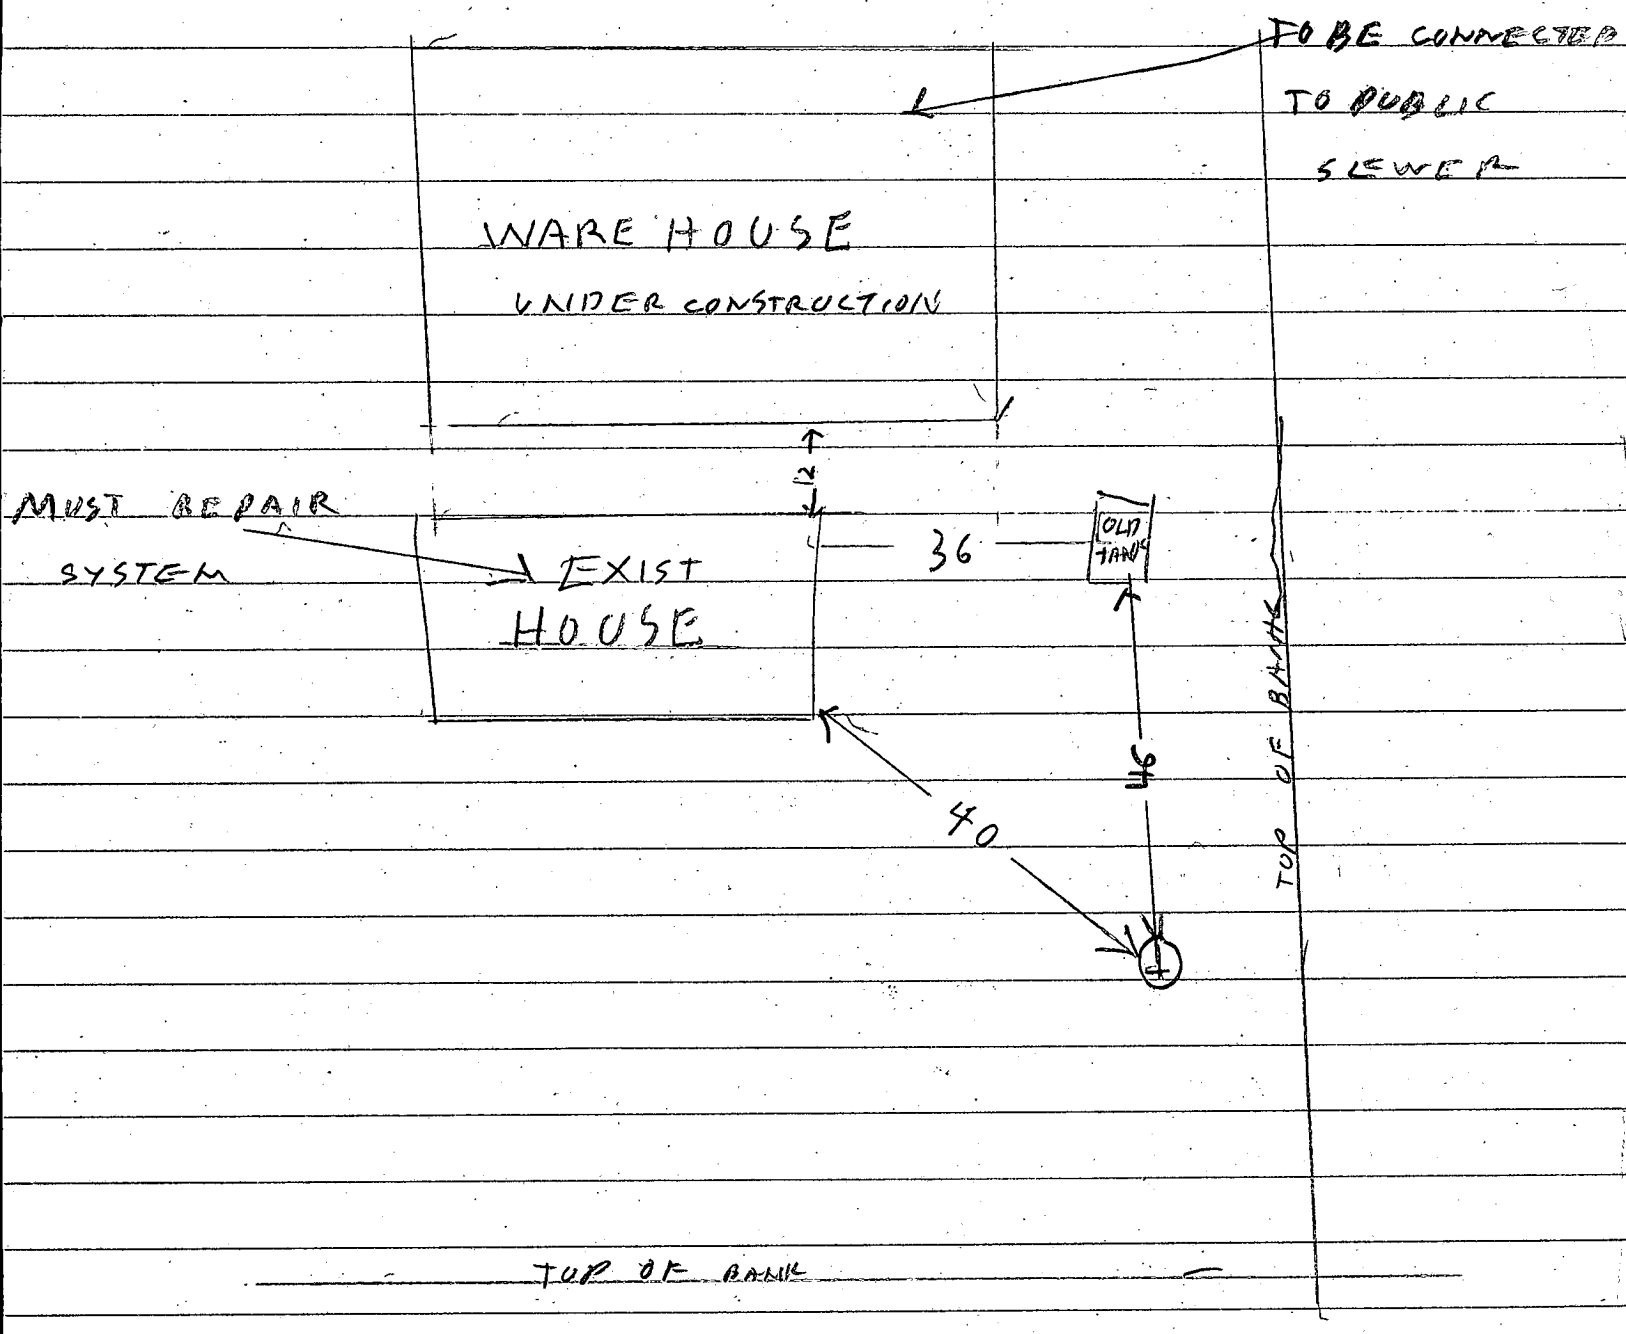 TO BE CONNECTED
TO PUBLIC
SEWER
WARE HOUSE
UNDER CONSTRUCTION
12
MUST REPAIR
SYSTEM
EXIST
HOUSE
36
OLD
TANK
46
40
TOP OF BANK
TOP OF BANK